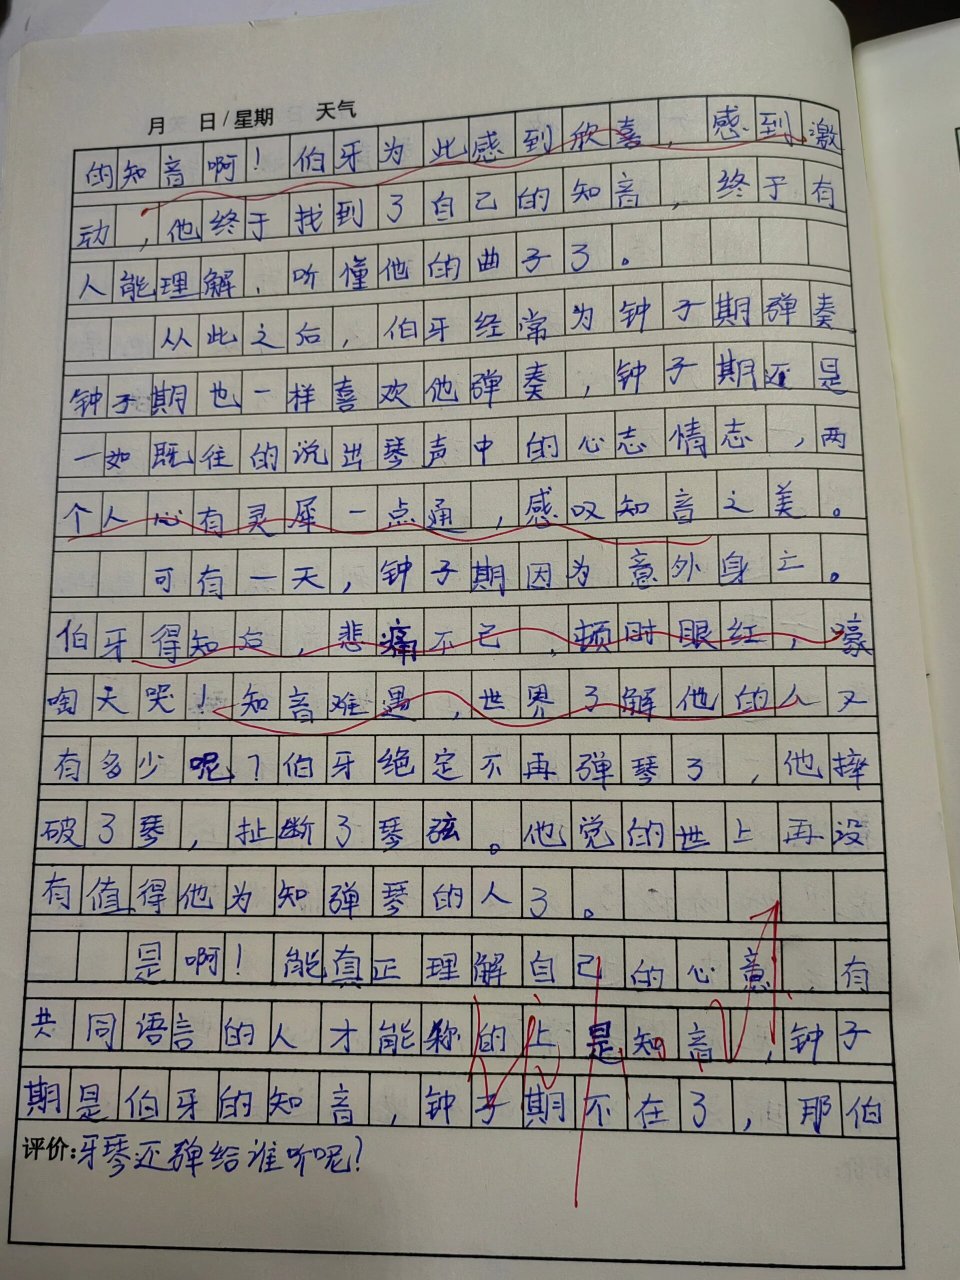 月 日/星期 天气
的知音啊!伯牙为此感到欣喜,感到激
动,他终于找到了自己的知音,终于有
人能理解、听懂他的曲子了。
从此之后,伯牙经常为钟子期弹奏
钟子期也一样喜欢他弹奏,钟子期还是
一如既往的说出琴声中的心志情志,两
个人心有灵犀一点通,感叹知音之美。
可有一天,钟子期因为意外身亡。
伯牙得知后,悲痛不已,顿时眼红,嚎
啕天哭!知音难是,世界了解他的人又
有多少呢?伯牙绝定不再弹琴了,他摔
破了琴,扯断了琴弦。他觉的世上再没
有值得他为知弹琴的人了。
是啊!能真正理解自己的心意,有
共同语言的人才能称的上是知音,钟子
期是伯牙的知音,钟子期不在了,那伯
评价:牙琴还弹给谁听呢?